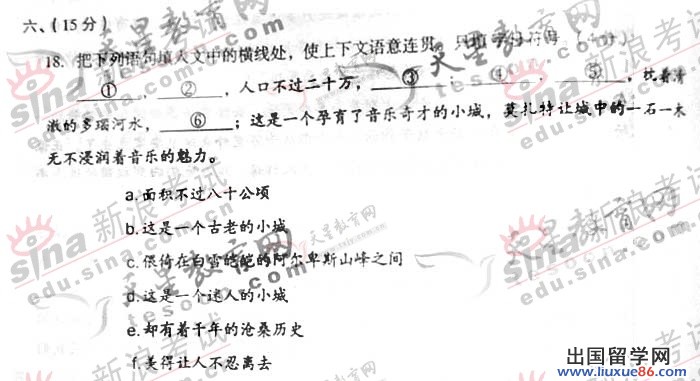 六、(15分)
18. 把下列语句填入文中的横线处，使上下文语意连贯。只填字母符号（4分）
①，②，人口不过二十万，③；④，⑤，枕着清
澈的多瑙河水，⑥；这是一个孕育了音乐奇才的小城，莫扎特让城中的一石一木
无不浸润着音乐的魅力。
a.面积不过八十公顷
b.这是一个古老的小城
c.偎倚在白雪皑皑的阿尔卑斯山峰之间
d.这是一个迷人的小城
e.却有着千年的沧桑历史
f.美得让人不忍离去
sina 新浪考试
edu.sina.com.cn
天星教育网
tesoon.com
出国留学网
www.liuxue86.com